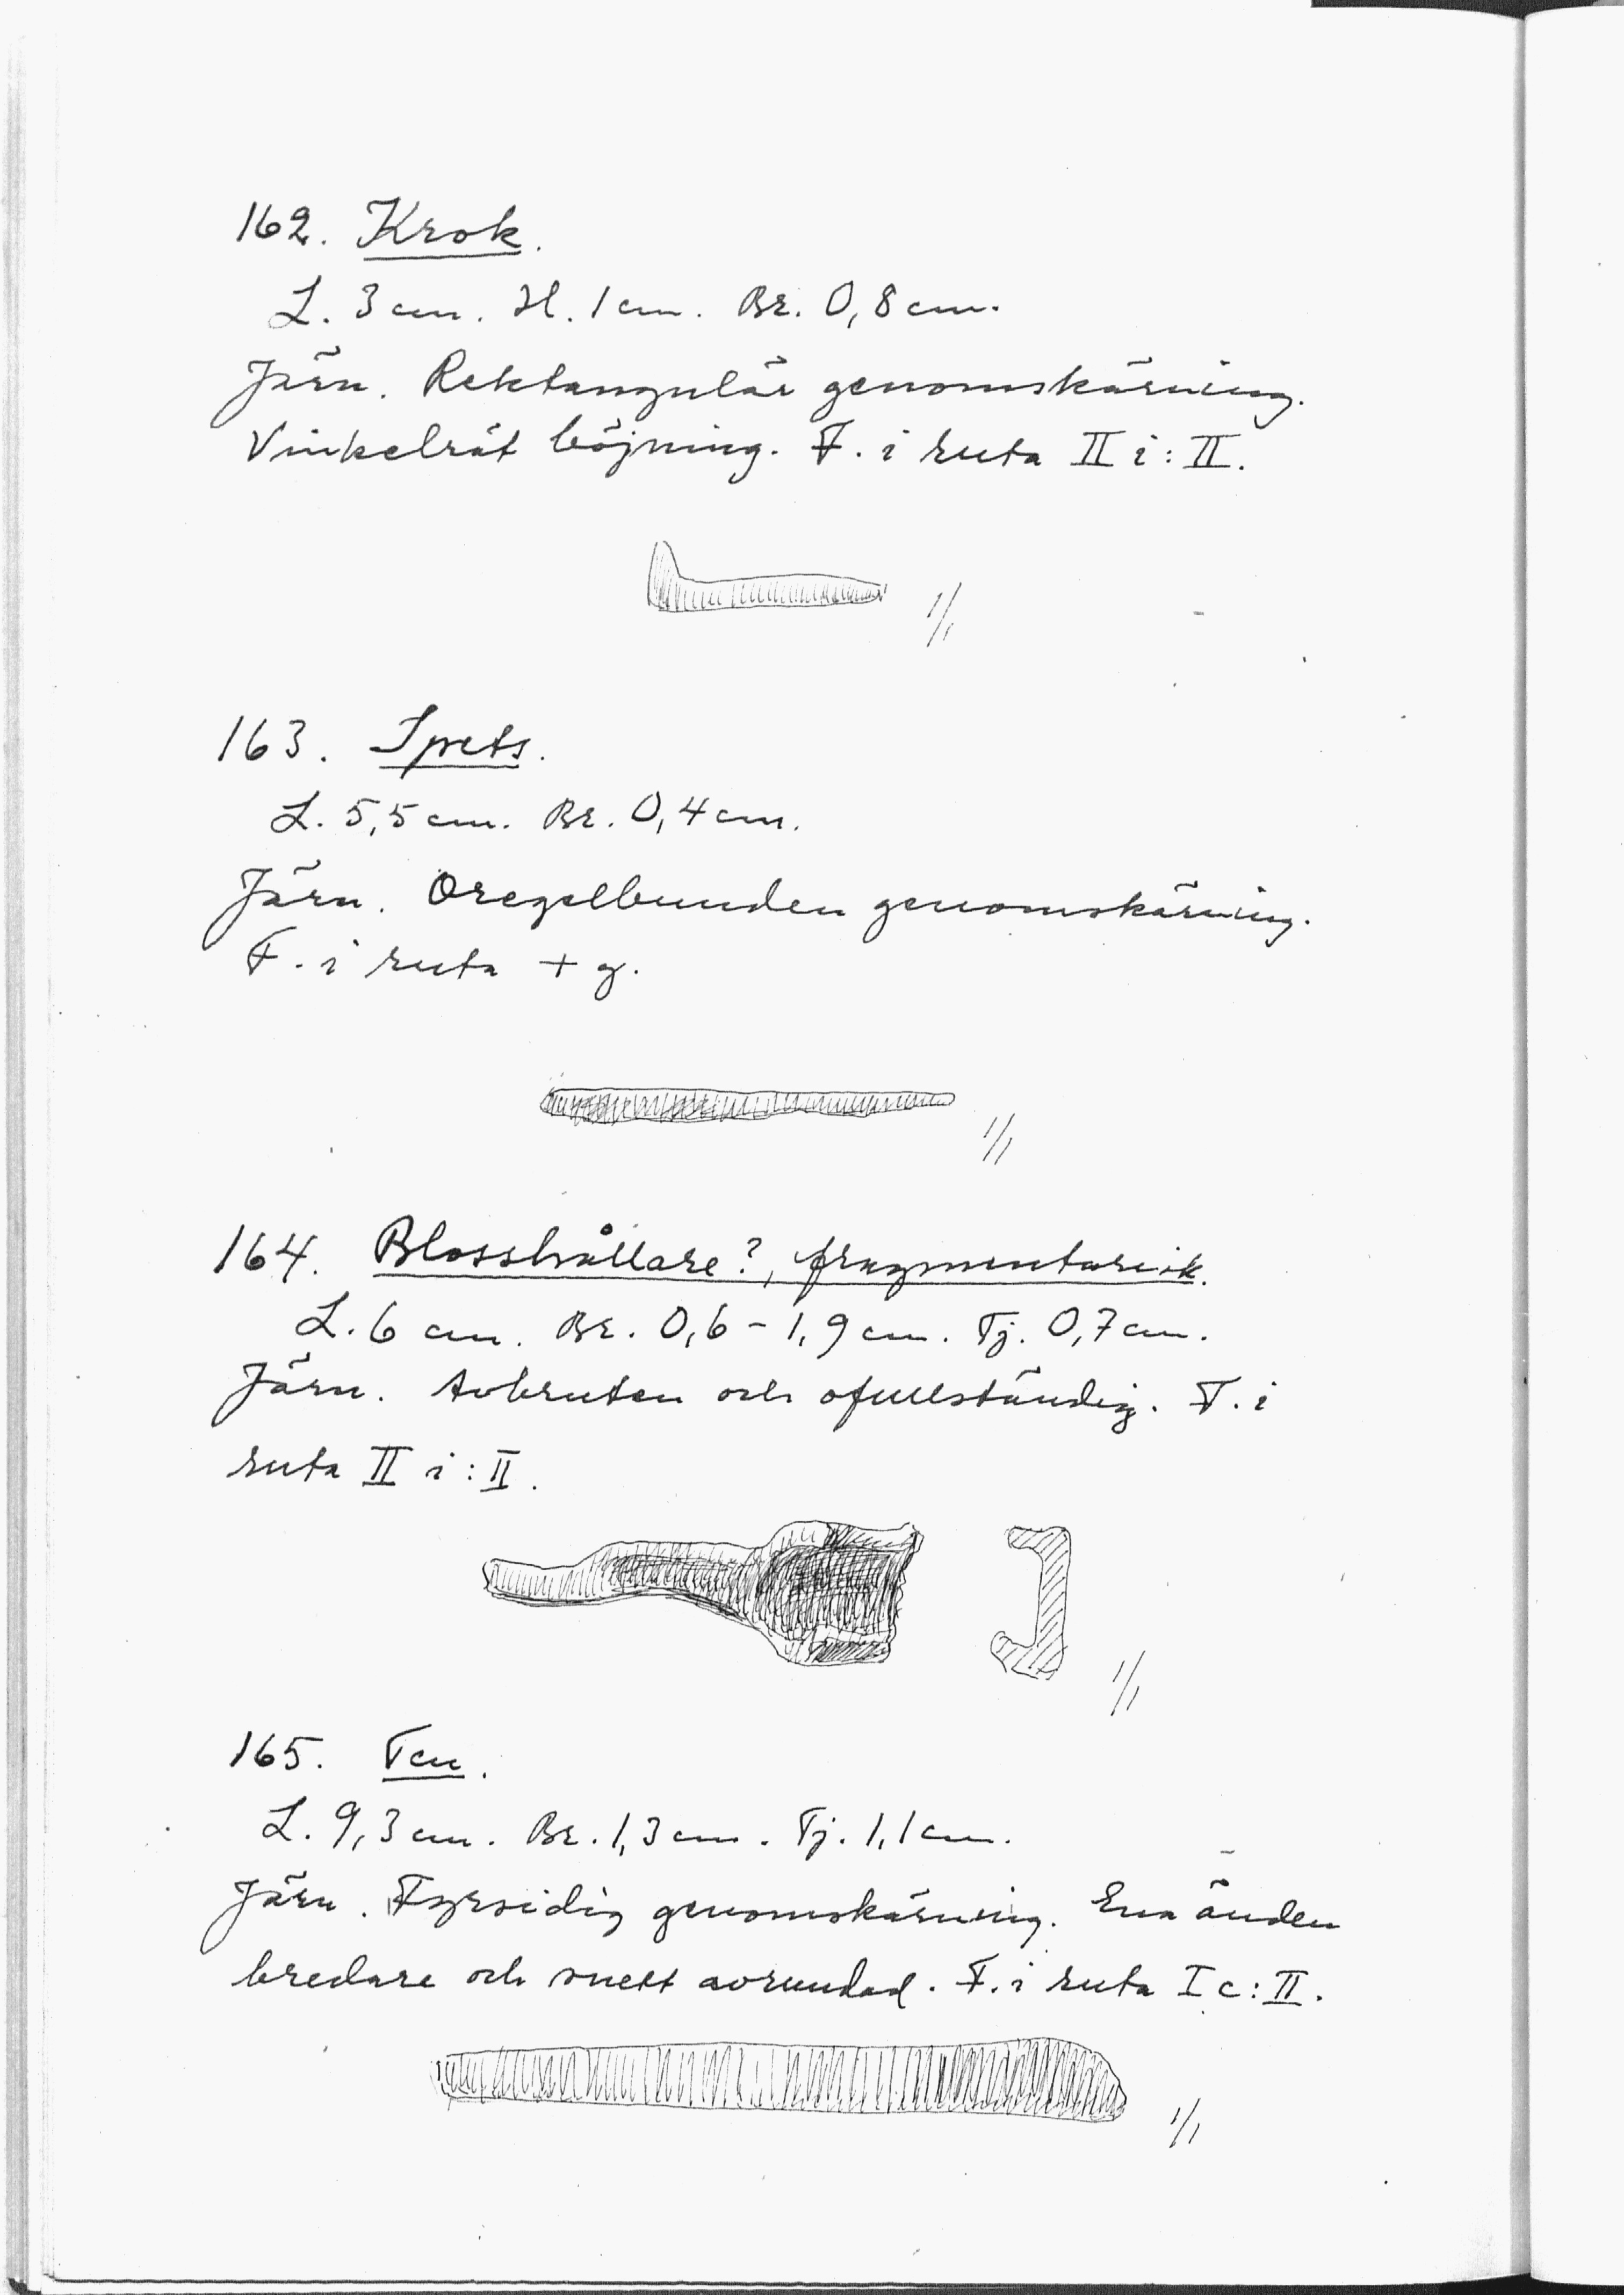 162. Krok.
L. 3 cm. H. 1 cm. Br. 0,8 cm.
Järn. Rektangulär genomskärning.
Vinkelrät böjning. F. i ruta II i : II.
1/1
163. Spets.
L. 5,5 cm. Br. 0,4 cm.
Järn. Oregelbunden genomskärning.
F. i ruta + g.
1/1
164. Blosshållare?, fragmentarisk.
L. 6 cm. Br. 0,6 - 1,9 cm. Tj. 0,7 cm.
Järn. Avbruten och ofullständig. F. i
ruta II i : II.
1/1
165. Ten.
L. 9,3 cm. Br. 1,3 cm. Tj. 1,1 cm.
Järn. Fyrsidig genomskärning. Ena änden
bredare och snett avrundad. F. i ruta I c : II.
1/1